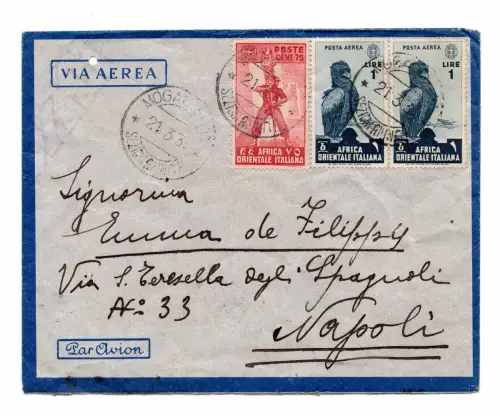 VIA AEREA
POSTE
CENT 75
AFRICA
ORIENTALE ITALIANA
POSTA AEREA
LIRE
1
AFRICA
ORIENTALE ITALIANA
POSTA AEREA
LIRE
1
AFRICA
ORIENTALE ITALIANA
21.3.3
Signorina
Emma de Filippis
Via S. Teresella degli Spagnoli
No 33
Napoli
Par Avion